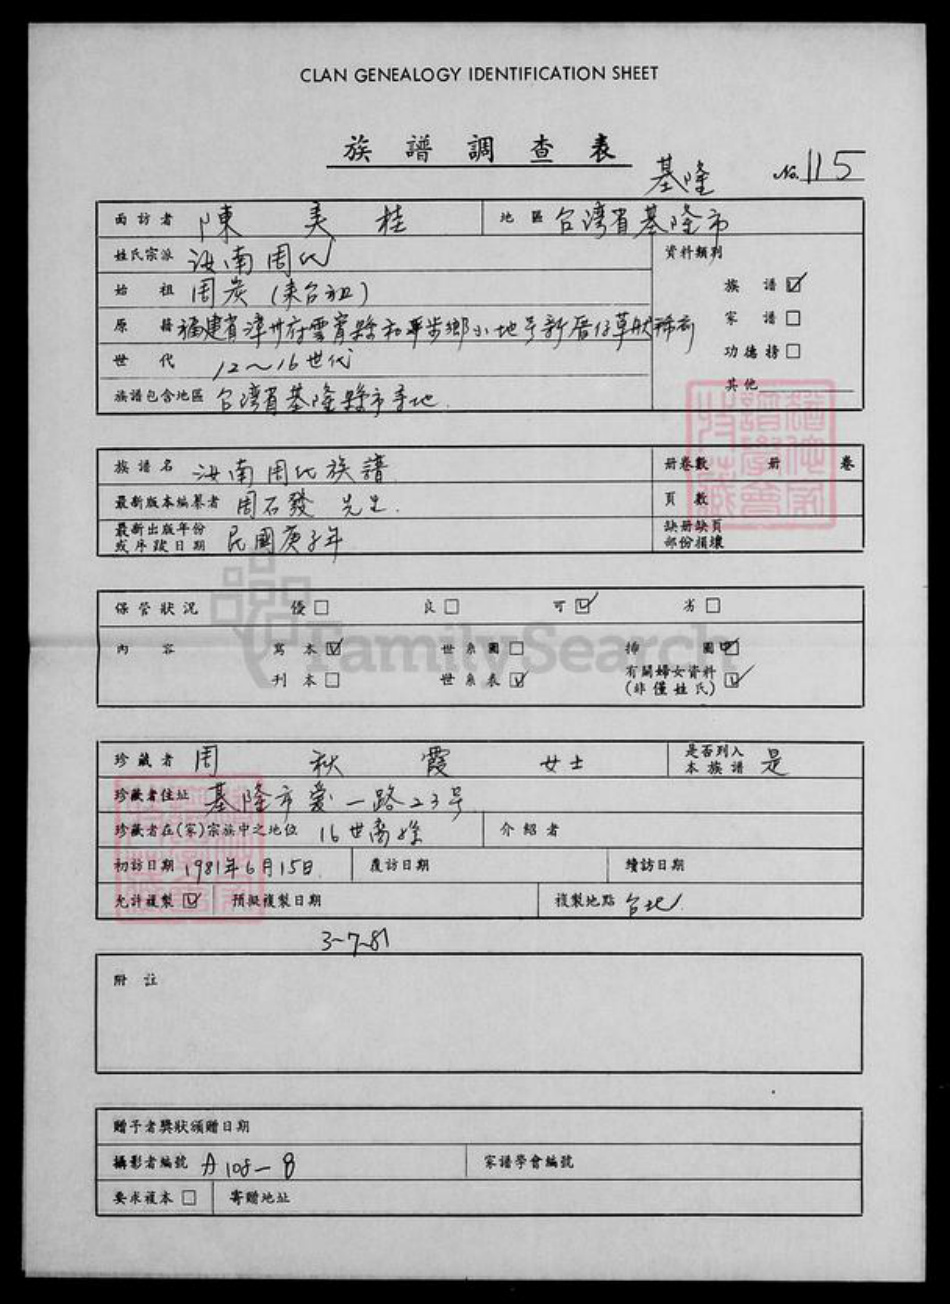 CLAN GENEALOGY IDENTIFICATION SHEET
族譜調查表
基隆 No. 115
面訪者 陳美桂 地區 台湾省基隆市
姓氏宗派 汝南周氏 資料類別
始祖 周炭(來台祖) 族譜 ☑
原籍 福建省漳州府雲霄縣和平步鄉小地号新厝仔草 家譜 □
世代 12~16世代 功德榜 □
族譜包含地區 台湾省基隆縣市等地. 其他
族譜名 汝南周氏族譜 冊卷數 冊 卷
最新版本編纂者 周石發 先生. 頁數
最新出版年份或序跋日期 民國庚子年 缺冊缺頁部份損壞
保管狀況 優 □ 良 □ 可 ☑ 劣 □
內容 寫本 ☑ 世系圖 □ 插圖 ☑
刊本 □ 世系表 ☑ 有關婦女資料(非僅姓氏) ☑
FamilySearch
珍藏者 周秋霞 女士 是否列入本族譜 是
珍藏者住址 基隆市愛一路23号
珍藏者在(家)宗族中之地位 16世裔孫 介紹者
初訪日期 1981年6月15日. 覆訪日期 續訪日期
允許複製 ☑ 預擬複製日期 複製地點 台北
3-7-81
附註
贈予者獎狀頒贈日期
攝影者編號 A108-8 家譜學會編號
要求複本 □ 寄贈地址